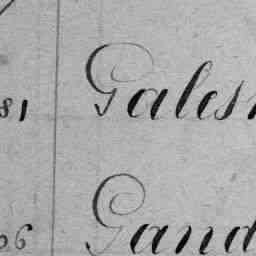 81 Gales
06 Gand